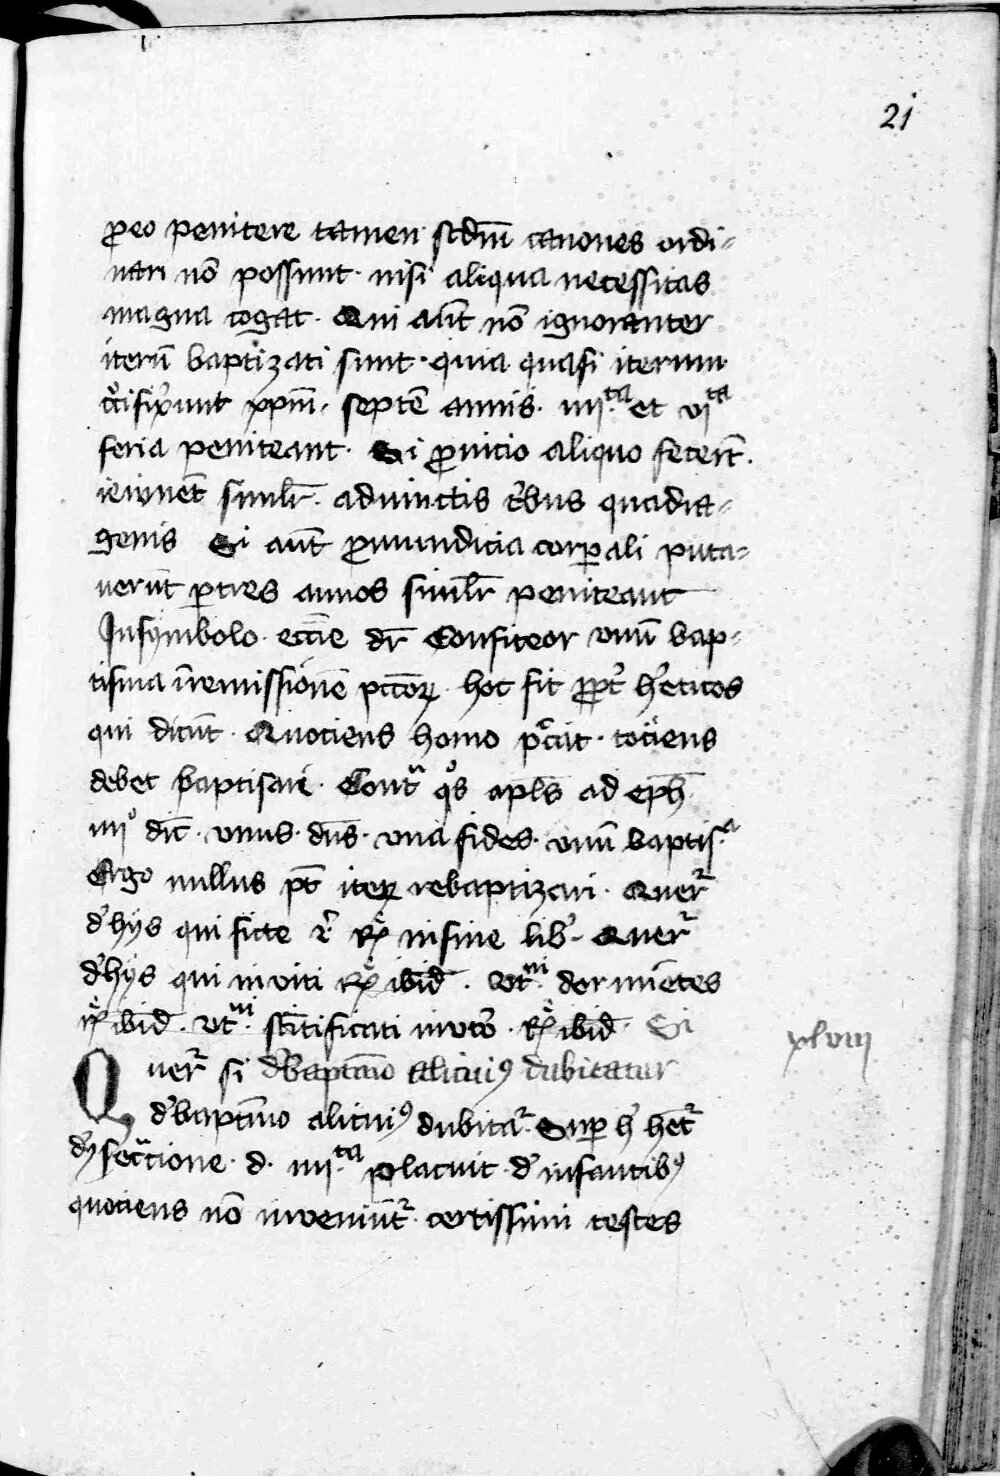 21
ꝓeo penitere tamen scdm̄ canones ordi-
nari nō possunt · nisi aliqua necessitas
magna cogat · Qui aūt nō ignoranter
iterū baptizati sunt · quia quasi iterum
xp̄m · septē annis · iiijta et vita
feria peniteant · Si ꝓ uicio aliquo fecerīt ·
ieiunēt simil̄r · aduinctis tribus quadra-
genis Si aūt ꝓ mundicia corꝑali puta-
uerūt ꝑ tres annos simil̄r peniteant
In symbolo · eccīe dr̄ Confiteor unū bap-
tisma in remissionē pccōꝝ · hoc fit ꝓpt̄ h'eticos
qui dicūt · Quociens homo pccāt · tociens
debet baptisari · Contra qos apl̄s ad eph̄
iiijo dic̄ · unus · dn̄s · una fides · unū baptis.a
Ergo nullus pt̄ iteꝝ rebaptizari · Querr
d'hijs qui ficte r̄ · Rx in fine lib' · Querr
d'hijs qui inuiti Rx ibid̄ · Utrū dormiētes
Rx ibid̄ · utrū · sc̄tificati in utero · Rx ibid̄ · Si
xlviij
Querr si d'baptīmo alicuiꝰ dubitatur
d'baptīmo alicuiꝰ dubitar · Suꝑ h' hetr
d'ꝯsecratione · d · iiijta placuit · d' infantibꝰ
quociens nō inueniūtr · certissimi testes